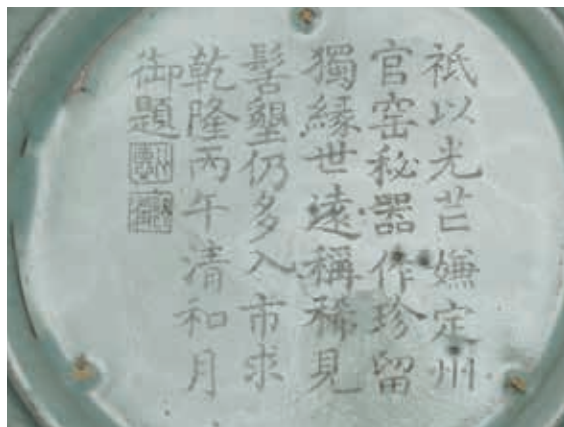 祇以光芒嫌定州
官窑秘器作珍留
獨緣世遠稱稀見
髺墾仍多入市求
乾隆丙午清和月
御題